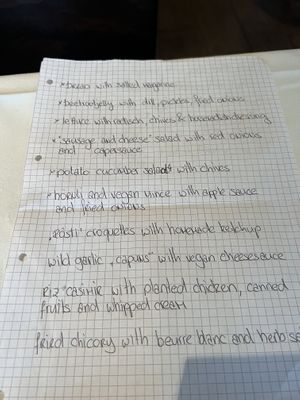 * bread with salted margarine
* beetrootjelly with dill, pickles, fried onions
* lettuce with radisch, chives & homemade dressing
* "sausage and cheese" salad with red onions
and capersauce
* potato cucumber salad with chives
* hörnli and vegan mince with apple sauce
and fried onions
„Rösti" croquettes with homemade ketchup
wild garlic „capuns" with vegan cheesesauce
Riz "casimir" with planted chicken, canned
fruits and whipped cream
fried chicory with beurre blanc and herb